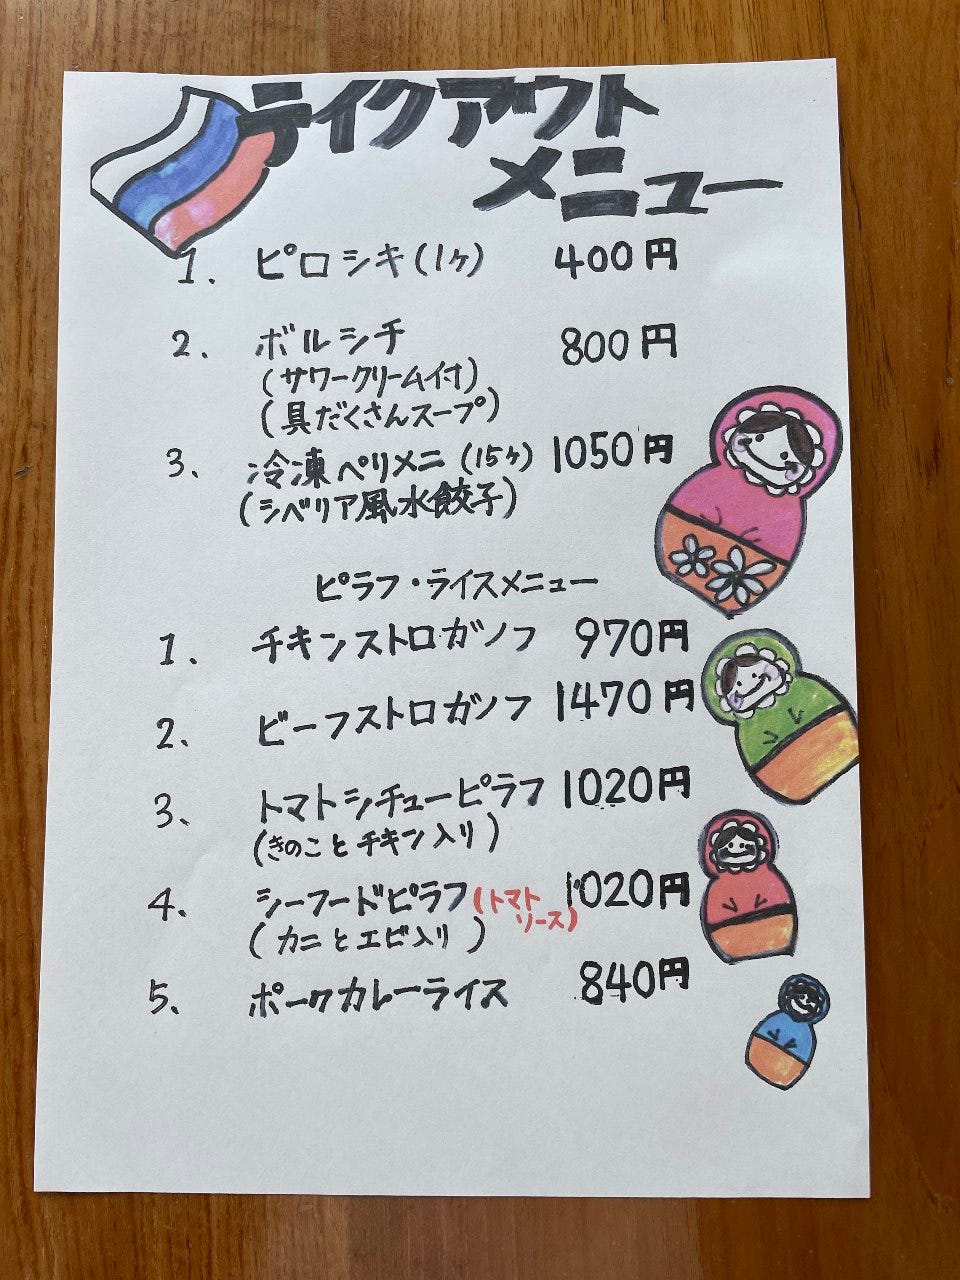 テイクアウト
メニュー
1. ピロシキ(1ヶ) 400円
2. ボルシチ 800円
(サワークリーム付)
(具だくさんスープ)
3. 冷凍ペリメニ(15ヶ) 1050円
(シベリア風水餃子)
ピラフ・ライスメニュー
1. チキンストロガノフ 970円
2. ビーフストロガノフ 1470円
3. トマトシチューピラフ 1020円
(きのことチキン入り)
4. シーフードピラフ(トマト 1020円
ソース)
(カニとエビ入り)
5. ポークカレーライス 840円